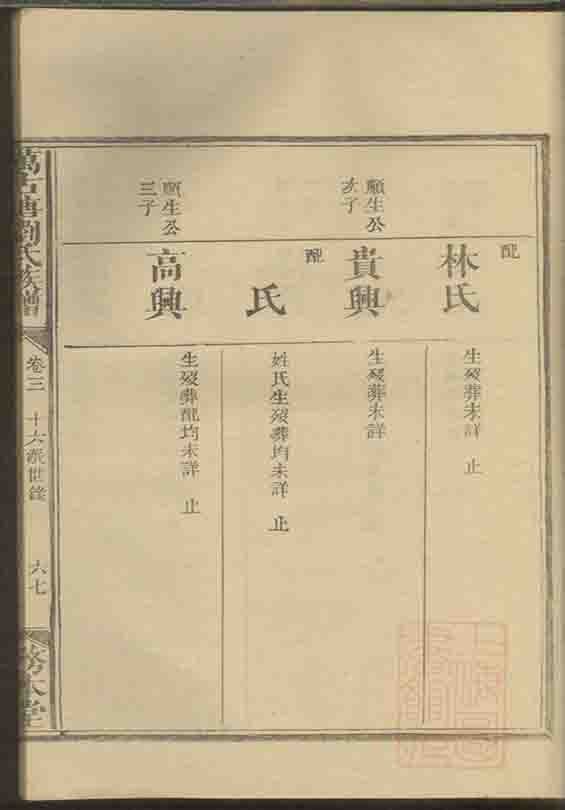 配
林氏
生歿葬未詳 止
顯生公
次子
貴興
生歿葬未詳
配
氏
姓氏生歿葬均未詳 止
顯生公
三子
高興
生歿葬配均未詳 止
劉氏族譜
卷三 十六派世錄 六七
務本堂